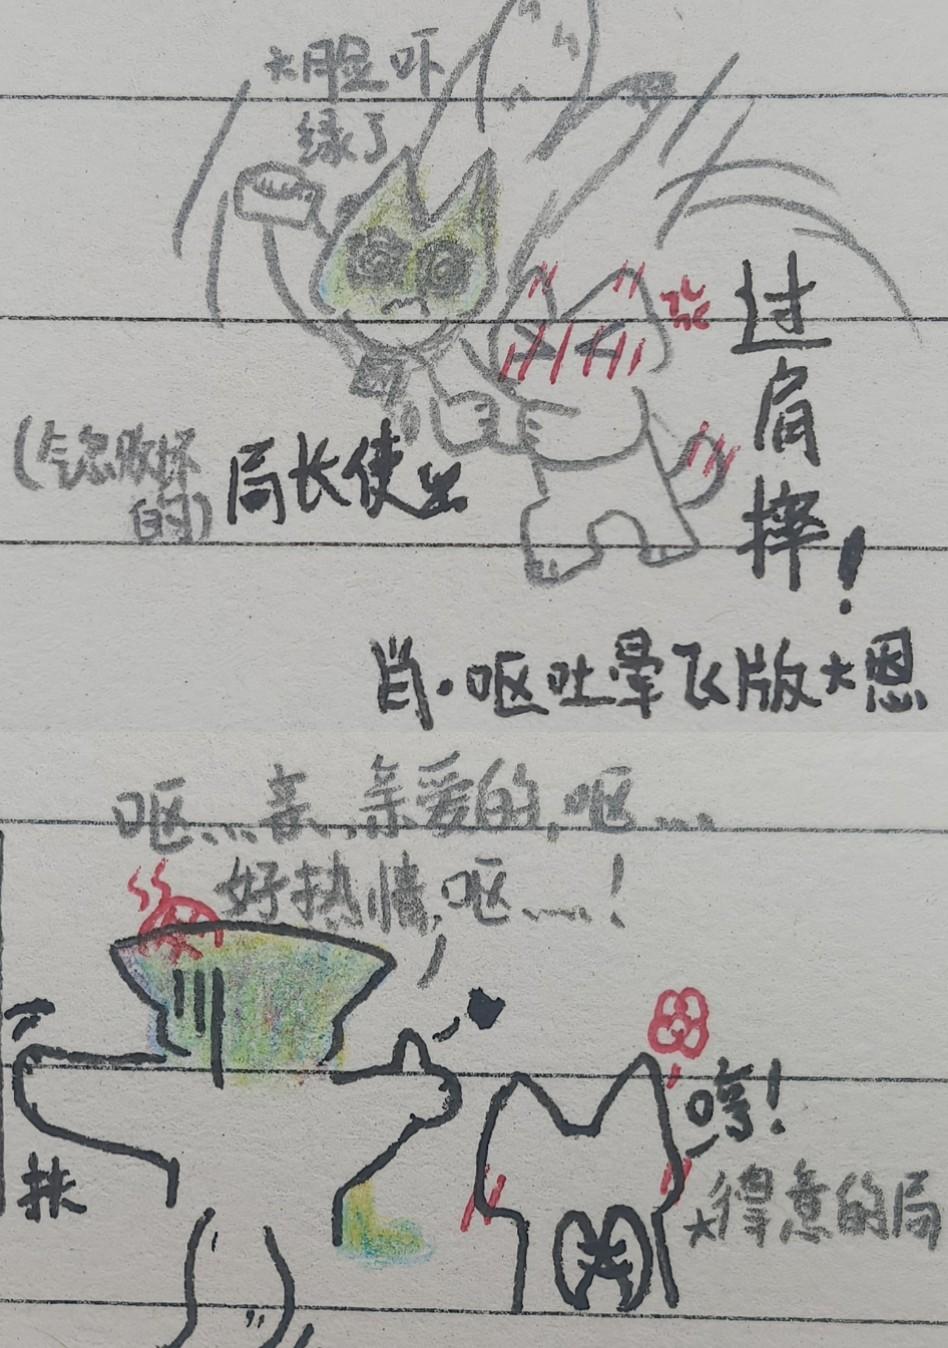 大脸吓
绿了
过肩摔！
(气急败坏
的)
局长使出
肖·呕吐晕飞版大恩
呕……亲、亲爱的，呕……
好热情，呕……！
哼！
扶
大得意的局